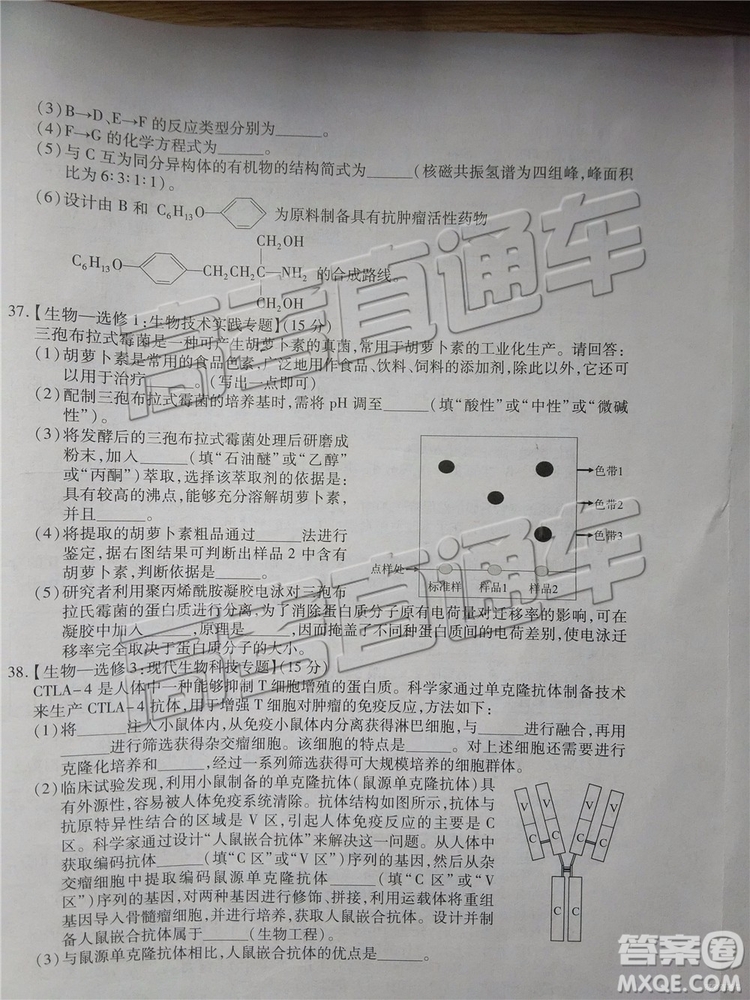 (3)B→D、E→F 的反应类型分别为______。
(4)F→G 的化学方程式为______。
(5)与 C 互为同分异构体的有机物的结构简式为______(核磁共振氢谱为四组峰,峰面积
比为 6:3:1:1)。
(6)设计由 B 和 C₆H₁₃O— 为原料制备具有抗肿瘤活性药物
CH₂OH
C₆H₁₃O— —CH₂CH₂C—NH₂ 的合成路线。
CH₂OH
37.【生物—选修 1:生物技术实践专题】(15 分)
三孢布拉式霉菌是一种可产生胡萝卜素的真菌,常用于胡萝卜素的工业化生产。请回答:
(1)胡萝卜素是常用的食品色素,广泛地用作食品、饮料、饲料的添加剂,除此以外,它还可
以用于治疗______。(写出一点即可)
(2)配制三孢布拉式霉菌的培养基时,需将 pH 调至______(填“酸性”或“中性”或“微碱
性”)。
(3)将发酵后的三孢布拉式霉菌处理后研磨成
粉末,加入______(填“石油醚”或“乙醇”
或“丙酮”)萃取,选择该萃取剂的依据是:
具有较高的沸点,能够充分溶解胡萝卜素,
并且______。
(4)将提取的胡萝卜素粗品通过______法进行
鉴定,据右图结果可判断出样品 2 中含有
胡萝卜素,判断依据是______。
色带1
色带2
色带3
点样处
标准样 样品1 样品2
(5)研究者利用聚丙烯酰胺凝胶电泳对三孢布
拉氏霉菌的蛋白质进行分离,为了消除蛋白质分子原有电荷量对迁移率的影响,可在
凝胶中加入______,原理是______,因而掩盖了不同种蛋白质间的电荷差别,使电泳迁
移率完全取决于蛋白质分子的大小。
38.【生物—选修 3:现代生物科技专题】(15 分)
CTLA-4 是人体中一种能够抑制 T 细胞增殖的蛋白质。科学家通过单克隆抗体制备技术
来生产 CTLA-4 抗体,用于增强 T 细胞对肿瘤的免疫反应,方法如下:
(1)将______注入小鼠体内,从免疫小鼠体内分离获得淋巴细胞,与______进行融合,再用
______进行筛选获得杂交瘤细胞。该细胞的特点是______。对上述细胞还需要进行
克隆化培养和______,经过一系列筛选获得可大规模培养的细胞群体。
(2)临床试验发现,利用小鼠制备的单克隆抗体(鼠源单克隆抗体)
有外源性,容易被人体免疫系统清除。抗体结构如图所示,抗体与
抗原特异性结合的区域是 V 区,引起人体免疫反应的主要是 C
区。科学家通过设计“人鼠嵌合抗体”来解决这一问题。从人体中
获取编码抗体______(填“C 区”或“V 区”)序列的基因,然后从杂
交瘤细胞中提取编码鼠源单克隆抗体______(填“C 区”或“V
区”)序列的基因,对两种基因进行修饰、拼接,利用运载体将重组
基因导入骨髓瘤细胞,并进行培养,获取人鼠嵌合抗体。设计并制
备人鼠嵌合抗体属于______(生物工程)。
V V
C C
C C
(3)与鼠源单克隆抗体相比,人鼠嵌合抗体的优点是______。
高考直通车
高考直通车
答案圈
MXQE.COM